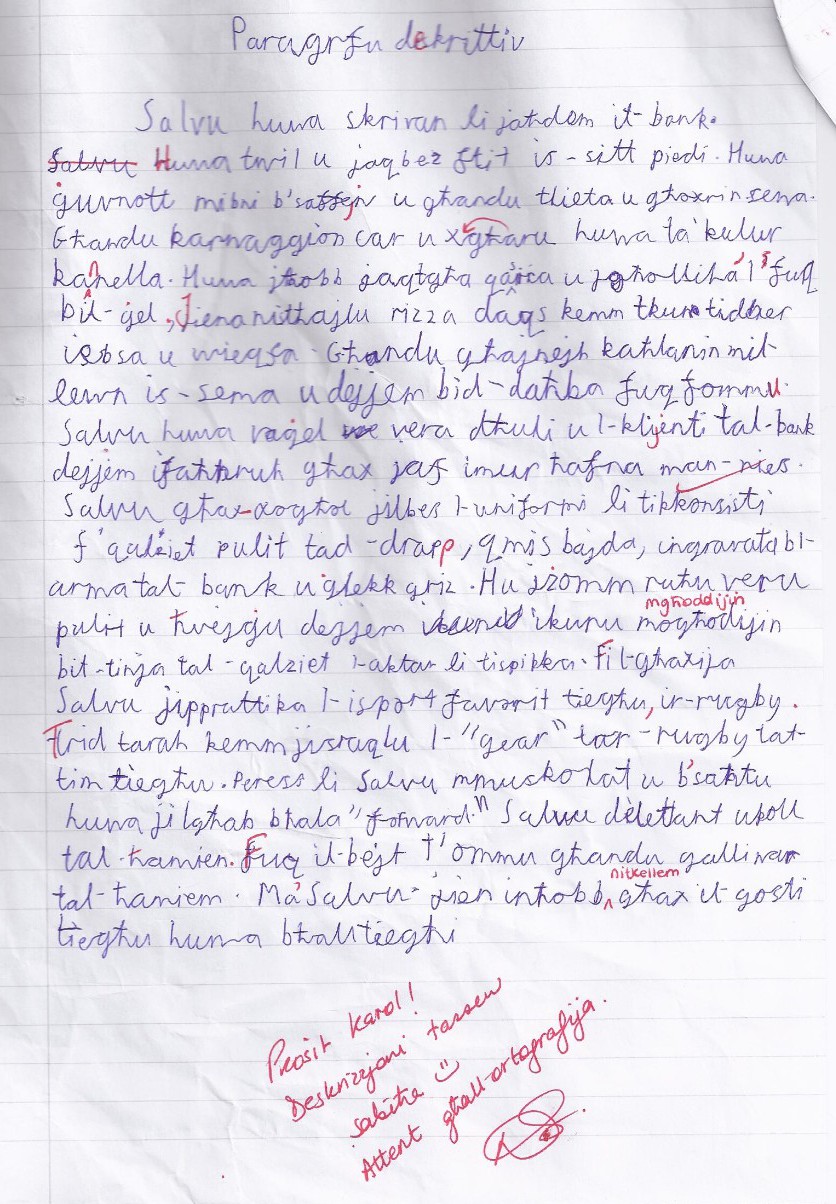 Paragrfu dekrittiv
Salvu huwa skrivan li jaħdem it-bank.
Salvu Huwa twil u jaqbez ftit is-sitt piedi. Huwa
ġuvnott mibni b'saħħejn u għandu tlieta u għoxrin sena.
Għandu karnaġġjon ċar u xgħaru huwa ta' kulur
kanella. Huwa jħobb jaqtgħa qasira u jgħolliha 'l fuq
bil-ġel, Jiena nitħajlu rizza daqs kemm tkun tidher
iebsa u wieqfa. Għandu għajnejh kaħlanin mil-
lewn is-sema u dejjem bid-daħka fuq fommu.
Salvu huwa raġel vera dħuli u l-klijenti tal-bank
dejjem ifaħħruh għax jaf imur ħafna man-nies.
Salvu għax-xogħol jilbes l-uniformi li tikkonsisti
f'qalziet pulit tad-drapp, qmis bajda, ingravata bl-
arma tal-bank u ġlekk griz. Hu jżomm ruħu veru
pulit u ħwejġu dejjem ikunu mogħodijin
mgħoddijin
bit-tinja tal-qalziet l-aktar li tispikka. Fil-għaxija
Salvu jipprattika l-isport favorit tiegħu, ir-rugby.
Trid tarah kemm jisraqlu l-"gear" tar-rugby tat-
tim tiegħu. Peress li Salvu mmuskolat u b'saħħtu
huwa jilgħab bħala "forward." Salvu dilettant ukoll
tal-ħamien. Fuq il-bejt t'ommu għandu gallinar
tal-ħamiem. Ma' Salvu jien inħobb għax il-gosti
nitkellem
tiegħu huma bħal tiegħi
Prosit Karol!
Deskrizzjoni tassew
sabiħa
Attent għall-ortografija.